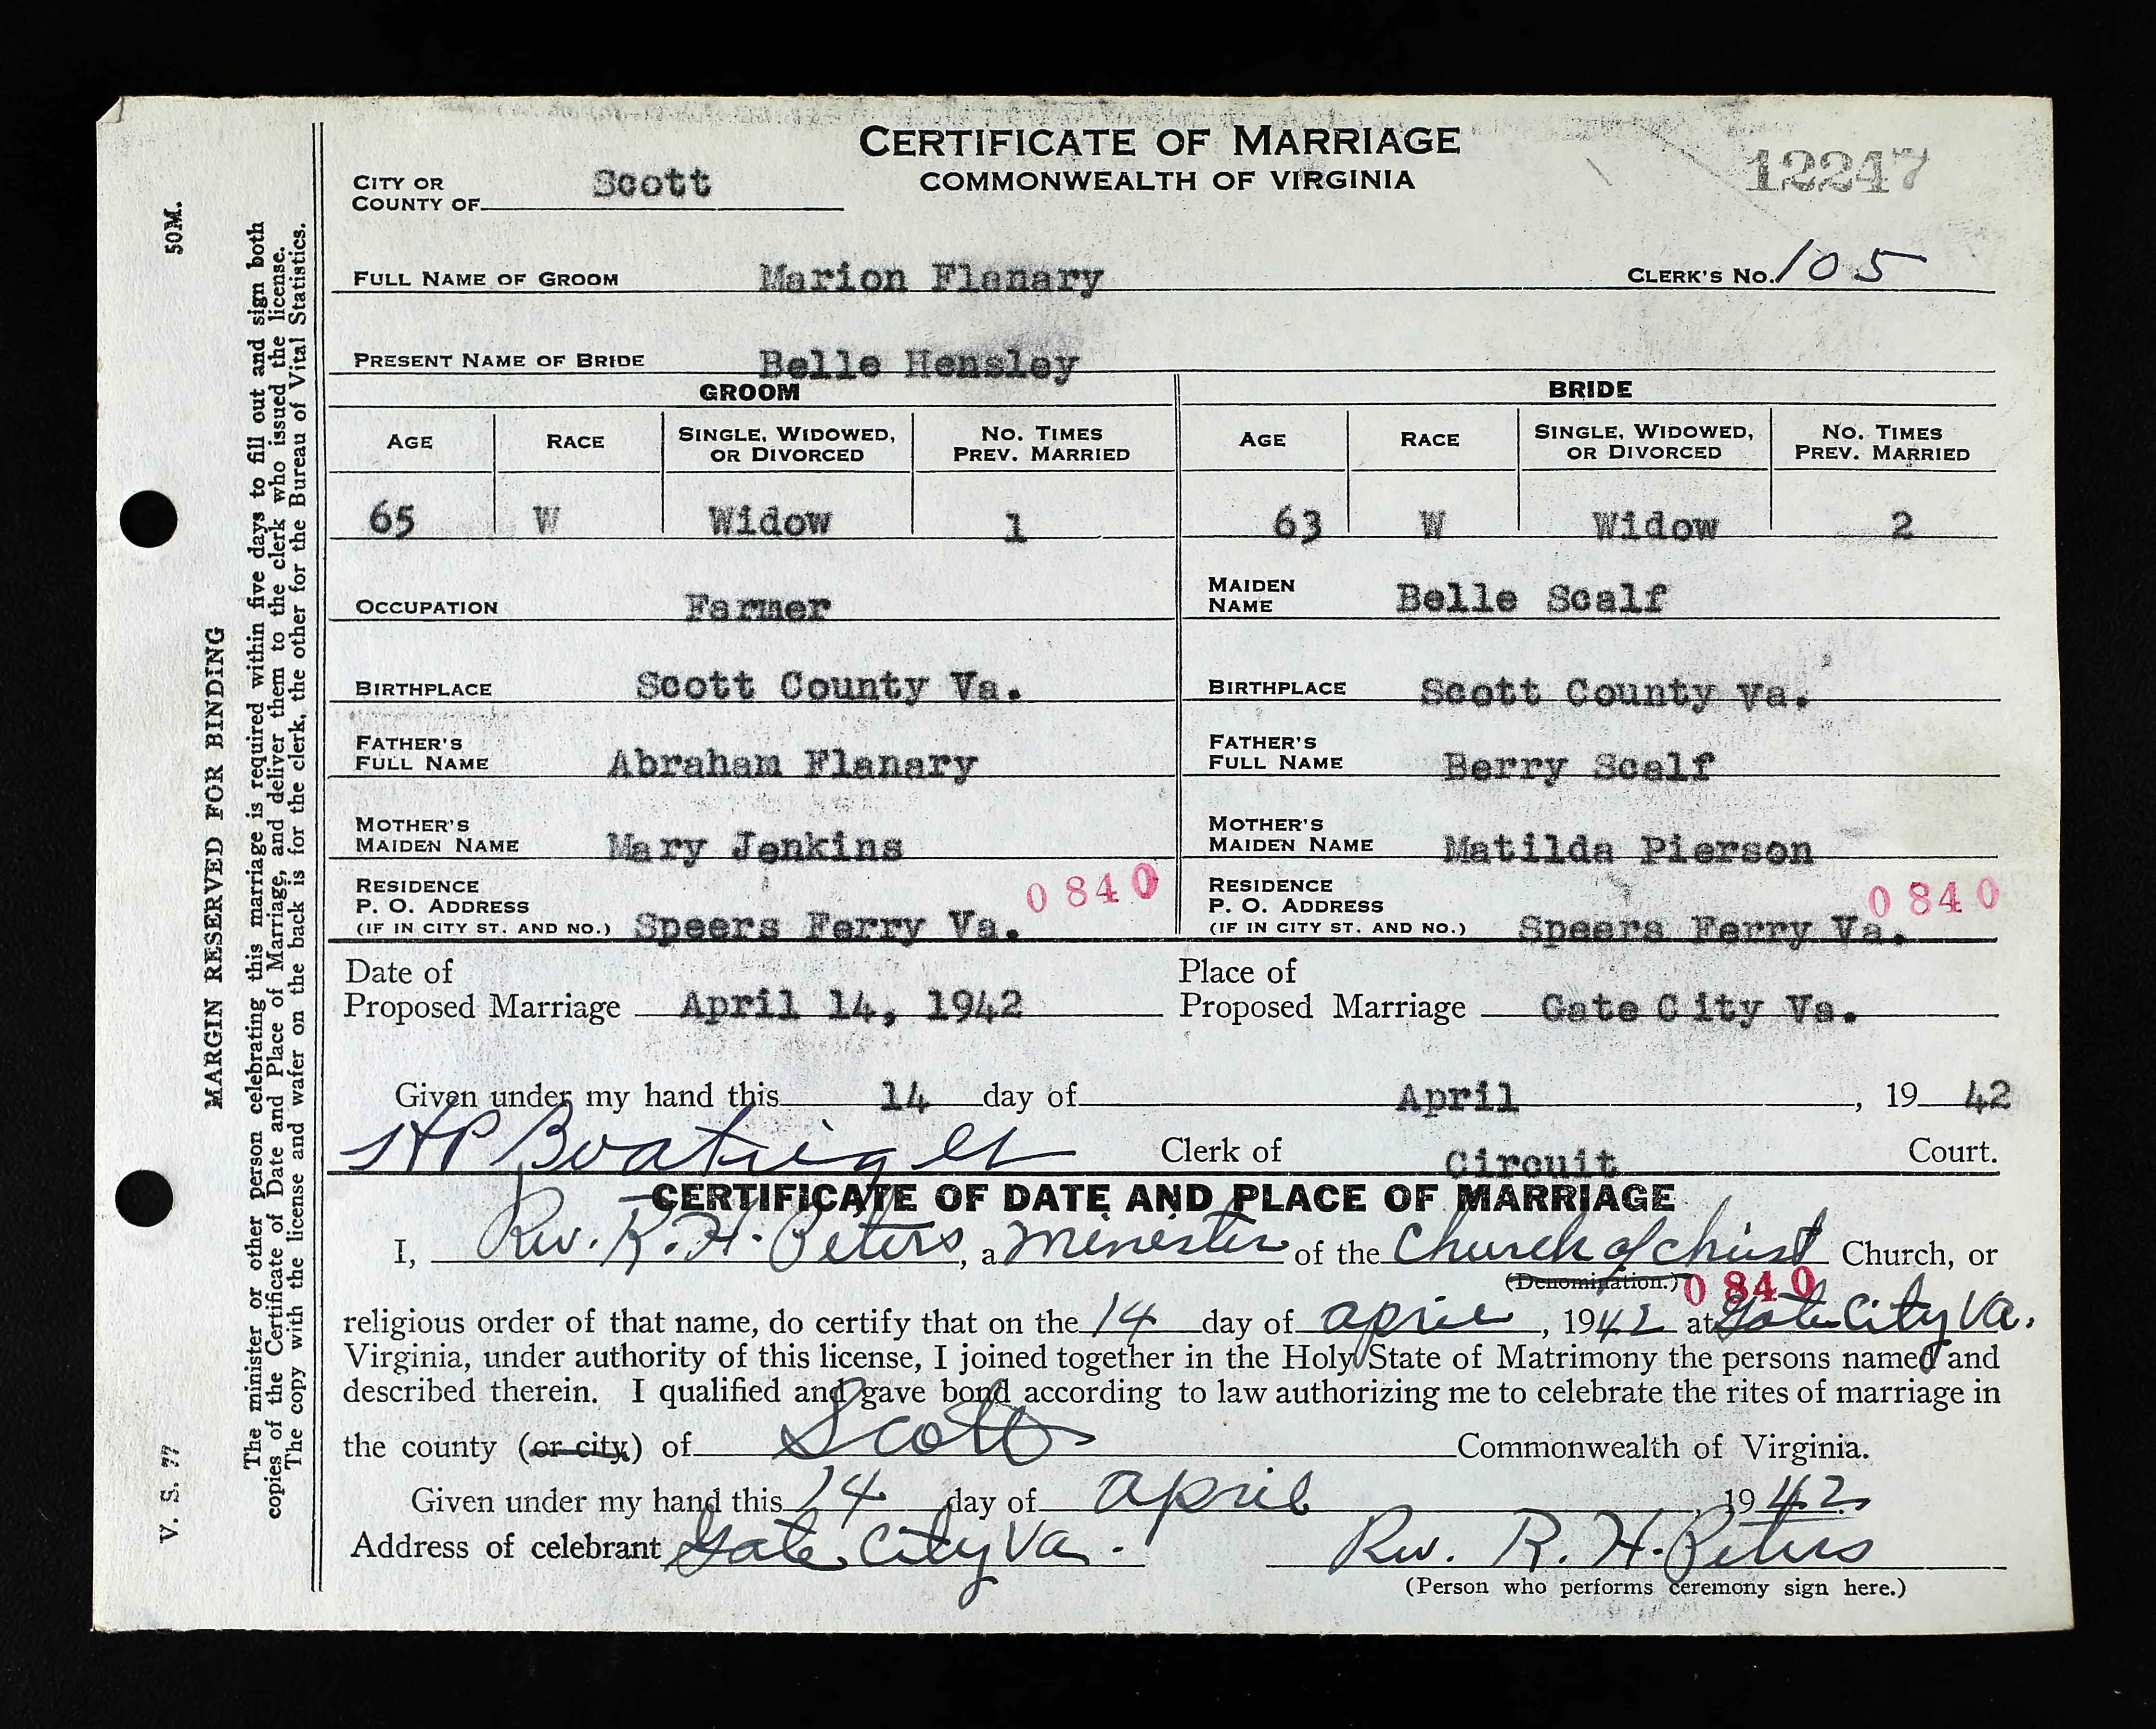 CERTIFICATE OF MARRIAGE
COMMONWEALTH OF VIRGINIA
12247
CITY OR COUNTY OF Scott
FULL NAME OF GROOM Marion Flanary CLERK'S No. 105
PRESENT NAME OF BRIDE Belle Hensley
GROOM BRIDE
AGE RACE SINGLE, WIDOWED, OR DIVORCED NO. TIMES PREV. MARRIED AGE RACE SINGLE, WIDOWED, OR DIVORCED NO. TIMES PREV. MARRIED
65 W Widow 1 63 W Widow 2
OCCUPATION Farmer MAIDEN NAME Belle Scalf
BIRTHPLACE Scott County Va. BIRTHPLACE Scott County Va.
FATHER'S FULL NAME Abraham Flanary FATHER'S FULL NAME Berry Scalf
MOTHER'S MAIDEN NAME Mary Jenkins MOTHER'S MAIDEN NAME Matilda Pierson
0840 0840
RESIDENCE P. O. ADDRESS (IF IN CITY ST. AND NO.) Speers Ferry Va. RESIDENCE P. O. ADDRESS (IF IN CITY ST. AND NO.) Speers Ferry Va.
Date of Proposed Marriage April 14, 1942 Place of Proposed Marriage Gate City Va.
Given under my hand this 14 day of April, 19 42
HP Boatright Clerk of Circuit Court.
CERTIFICATE OF DATE AND PLACE OF MARRIAGE
I, Rev. R. H. Peters, a Minester of the Church of christ Church, or
(Denomination.) 0840
religious order of that name, do certify that on the 14 day of april, 1942 at Gate City Va.
Virginia, under authority of this license, I joined together in the Holy State of Matrimony the persons named and
described therein. I qualified and gave bond according to law authorizing me to celebrate the rites of marriage in
the county (or city) of Scott Commonwealth of Virginia.
Given under my hand this 14 day of april, 1942
Address of celebrant Gate City Va. Rev. R. H. Peters
(Person who performs ceremony sign here.)
V. S. 77 50M.
MARGIN RESERVED FOR BINDING
The minister or other person celebrating this marriage is required within five days to fill out and sign both
copies of the Certificate of Date and Place of Marriage, and deliver them to the clerk who issued the license.
The copy with the license and wafer on the back is for the clerk, the other for the Bureau of Vital Statistics.